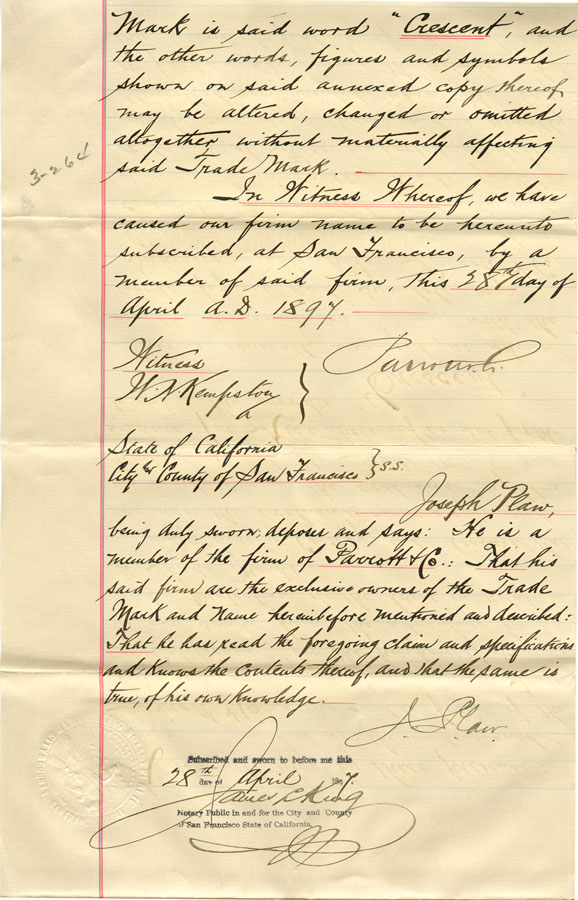 Mark is said word "Crescent", and
the other words, figures and symbols
shown on said annexed copy thereof
may be altered, changed or omitted
altogether, without materially affecting
said Trade Mark.
3-264
In Witness Whereof, we have
caused our firm name to be hereunto
subscribed, at San Francisco, by a
member of said firm, this 28th day of
April A.D. 1897.
Witness
W. A. Kempston
Parrott & Co.
State of California
City & County of San Francisco } S.S.
Joseph Plaw,
being duly sworn, deposes and says: He is a
member of the firm of Parrott & Co.: That his
said firm are the exclusive owners of the Trade
Mark and Name hereinbefore mentioned and described:
That he has read the foregoing claim and specifications
and knows the contents thereof, and that the same is
true, of his own knowledge.
J. Plaw.
Subscribed and sworn to before me this
28th day of April 1897.
James L. King
Notary Public in and for the City and County
of San Francisco State of California.